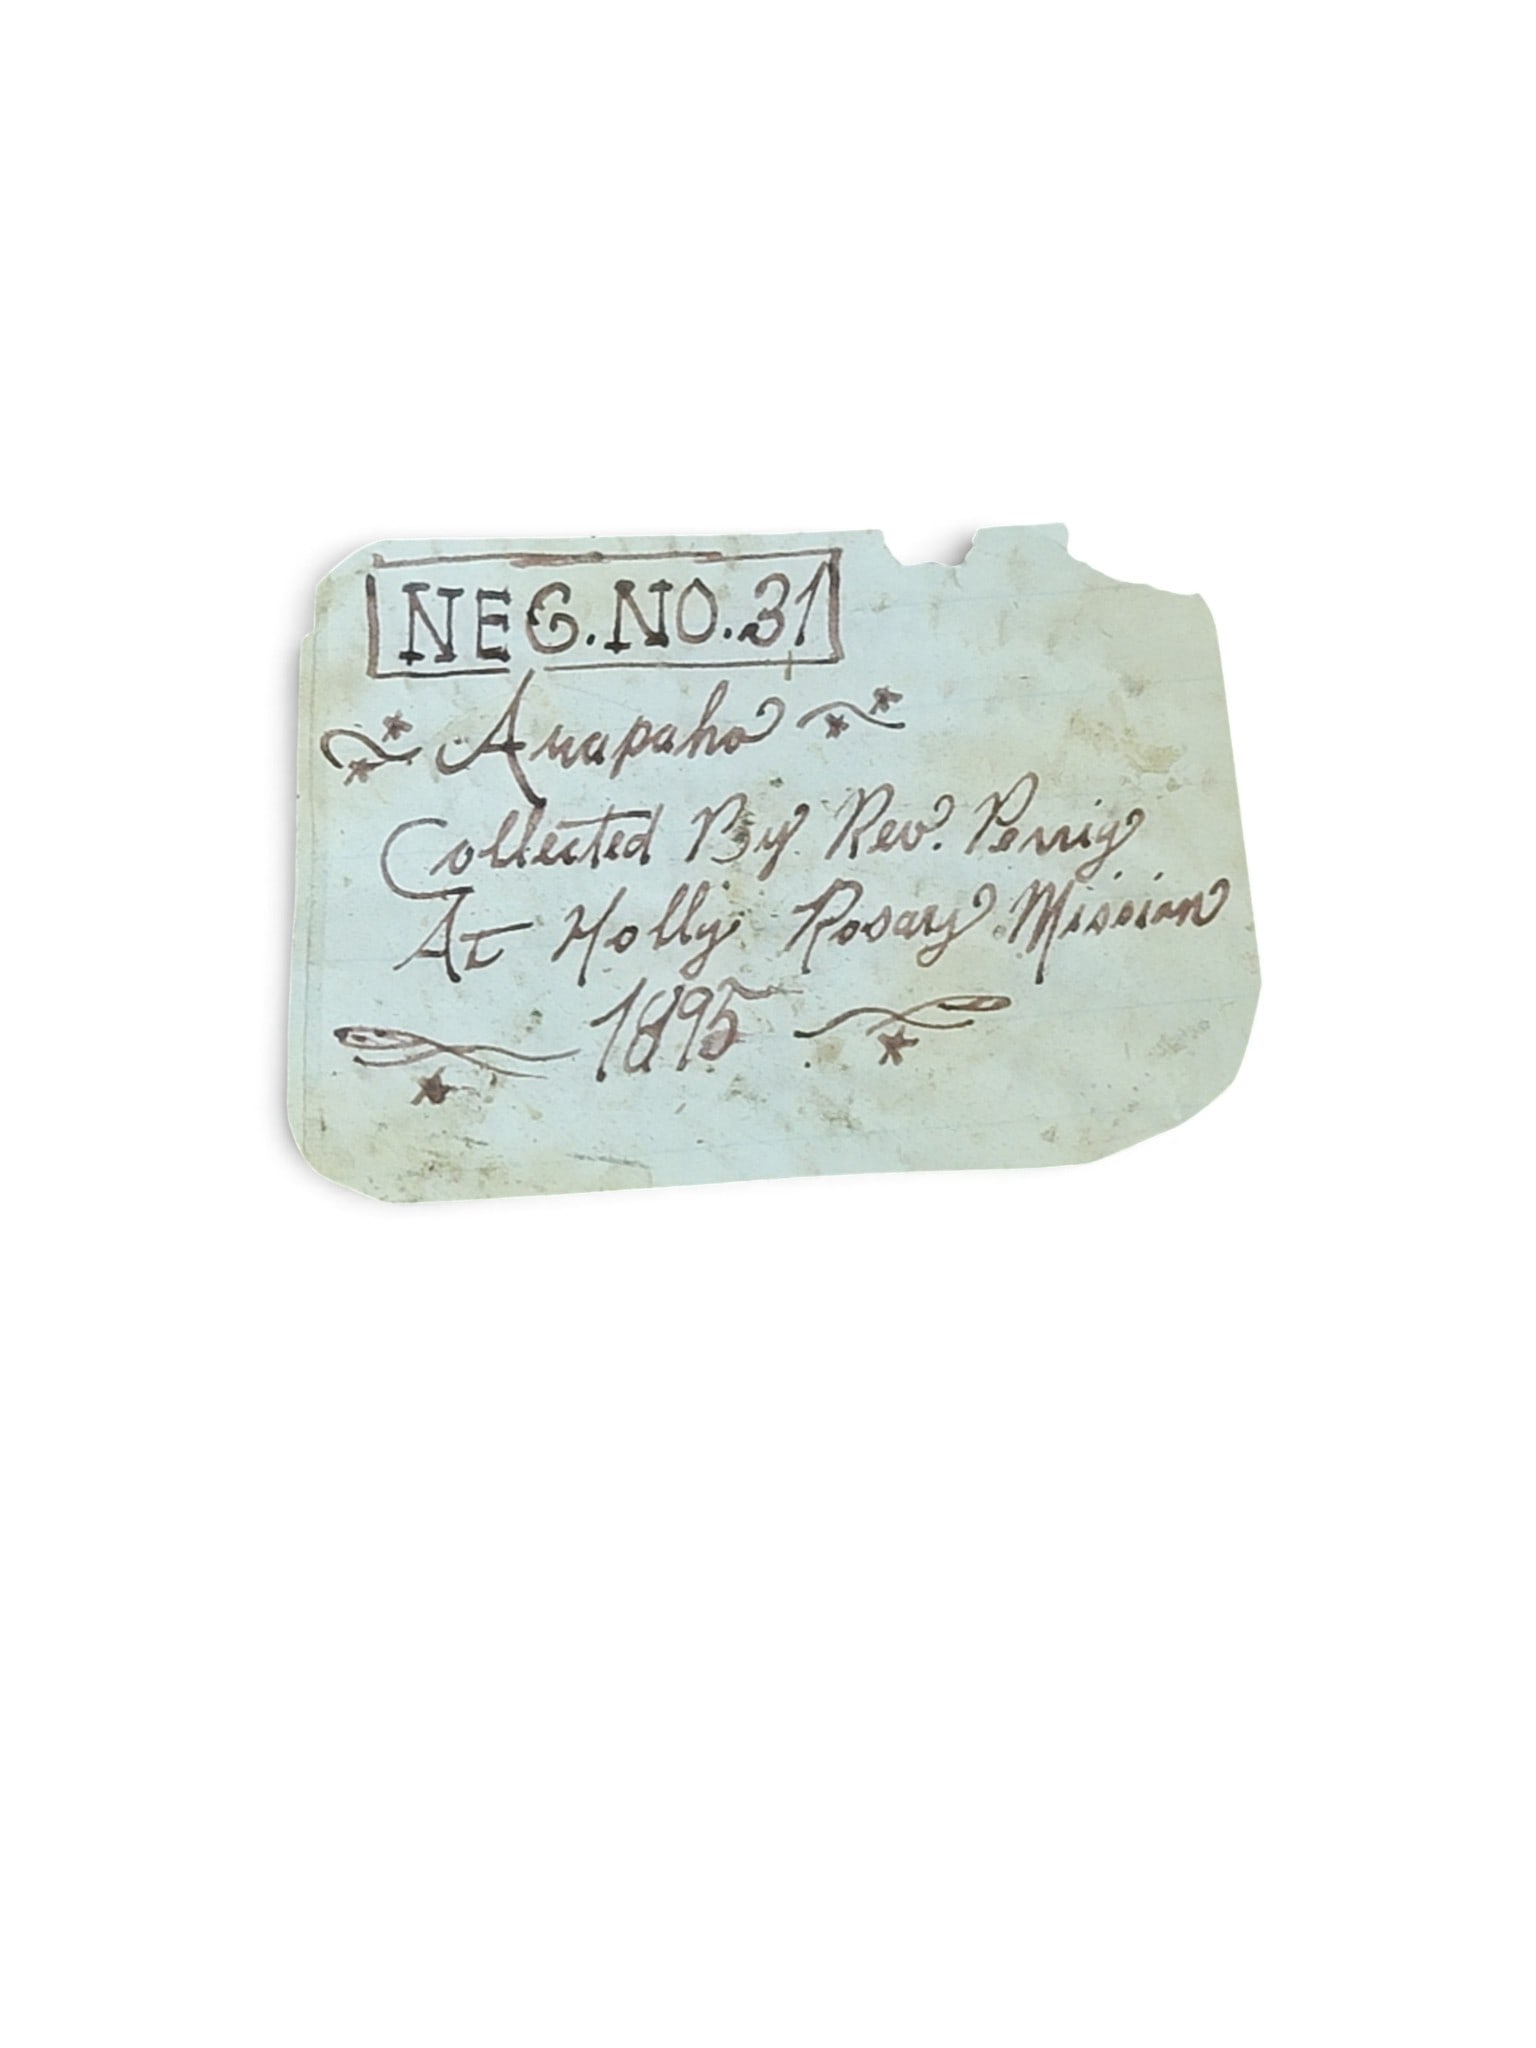 NEG.NO.31
Arapaho
Collected By Rev. Perrig
At Holly Rosary Mission
1895